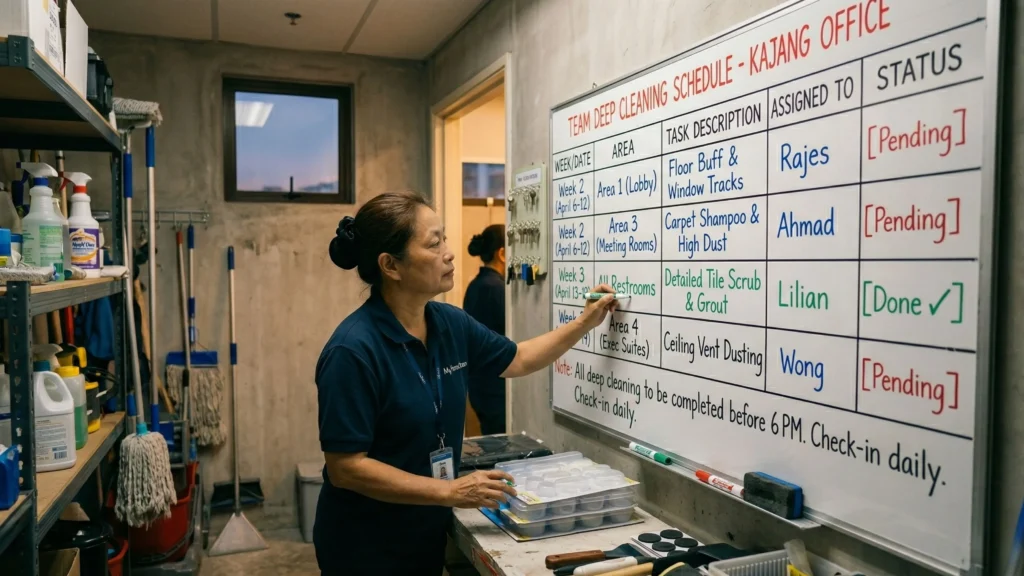 TEAM DEEP CLEANING SCHEDULE - KAJANG OFFICE
WEEK/DATE AREA TASK DESCRIPTION ASSIGNED TO STATUS
Week 2 (April 6-12) Area 1 (Lobby) Floor Buff & Window Tracks Rajes [Pending]
Week 2 (April 6-12) Area 3 (Meeting Rooms) Carpet Shampoo & High Dust Ahmad [Pending]
Week 3 All Restrooms Detailed Tile Scrub & Grout Lilian [Done ✓]
Area 4 (Exec Suites) Ceiling Vent Dusting Wong [Pending]
Note: All deep cleaning to be completed before 6 PM. Check-in daily.
Check-in daily.